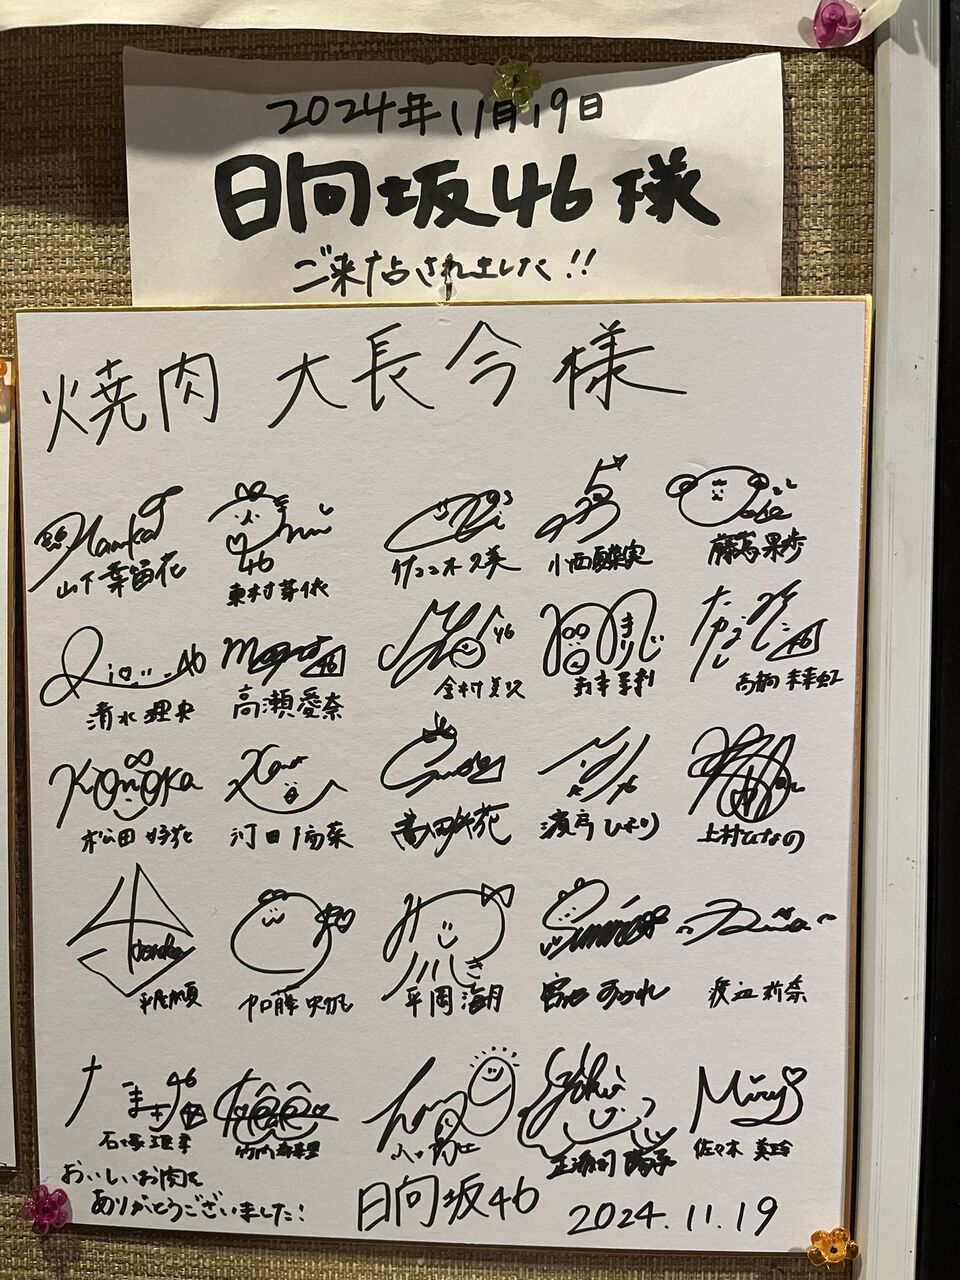 2024年11月19日
日向坂46様
ご来店されました!!
焼肉 大長今様
46
山下葉留花 東村芽依 佐々木久美 小西夏菜実 藤嶌果歩
46 46 46
清水理央 高瀬愛奈 金村美玖 髙橋未来虹
Konoka
松田好花 河田陽菜 富田鈴花 濱岸ひより 上村ひなの
平尾帆夏 加藤史帆 平岡海月 宮地すみれ 渡辺莉奈
たまき 46
石塚瑶季 竹内希来里 小坂菜緒 正源司陽子 佐々木美玲
おいしいお肉を
ありがとうございました!
日向坂46 2024.11.19